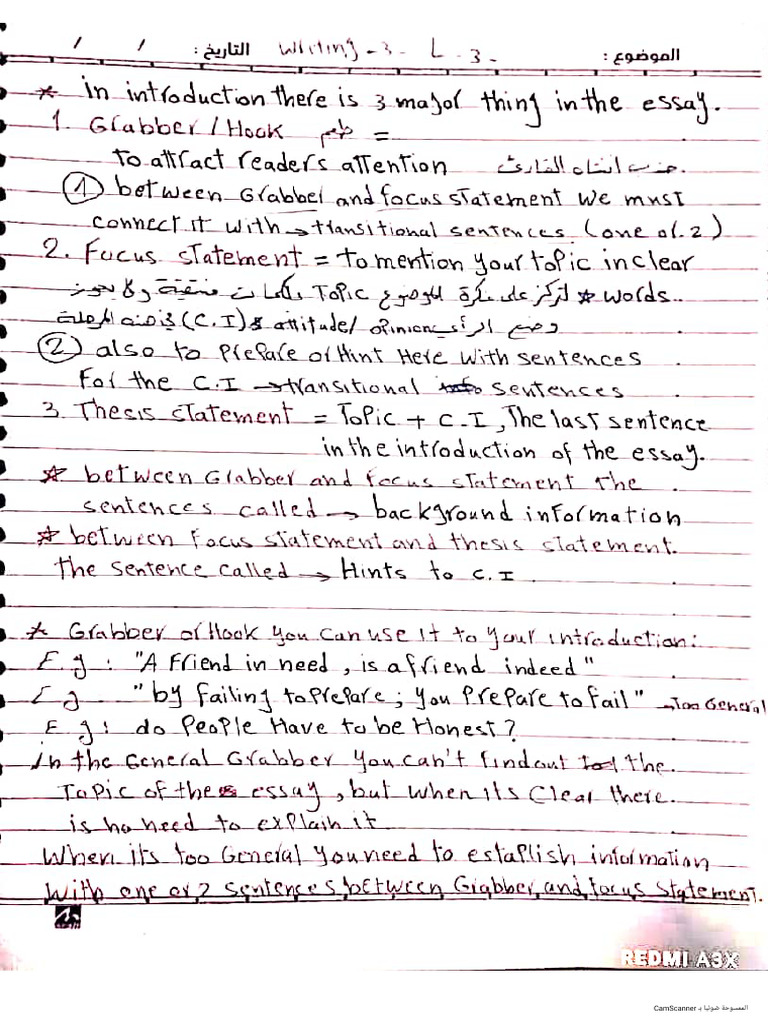 الموضوع : Writing - 3 - L - 3 - التاريخ : / /
* in introduction there is 3 major thing in the essay.
1. Grabber / Hook طعم =
to attract readers attention جذب انتباه القارئ.
① between Grabber and focus statement we must
connect it with → transitional sentences (one or 2)
2. Focus statement = to mention your topic in clear
words.. * لتركز على فكرة الموضوع Topic بكلمات منتقية ولا يجوز
وضع الرأي attitude/opinion & (C.I) في هذه المرحلة
② also to prepare or Hint Here with sentences
For the C.I → transitional sentences
3. Thesis statement = Topic + C.I, The last sentence
in the introduction of the essay.
* between Grabber and focus statement the
sentences called → background information
* between focus statement and thesis statement.
the sentence called → Hints to C.I
* Grabber or Hook you can use it to your introduction:
E.g : "A Friend in need, is a friend indeed"
E.g "by failing to prepare; you prepare to fail" → too General
E.g : do People Have to be Honest?
in the General Grabber you can't find out the
Topic of the essay, but when its Clear there.
is no need to explain it
When its too General you need to estaplish information
with one or 2 sentences between Grabber and focus statement.
REDMI A3X
الممسوحة ضوئيا بـ CamScanner